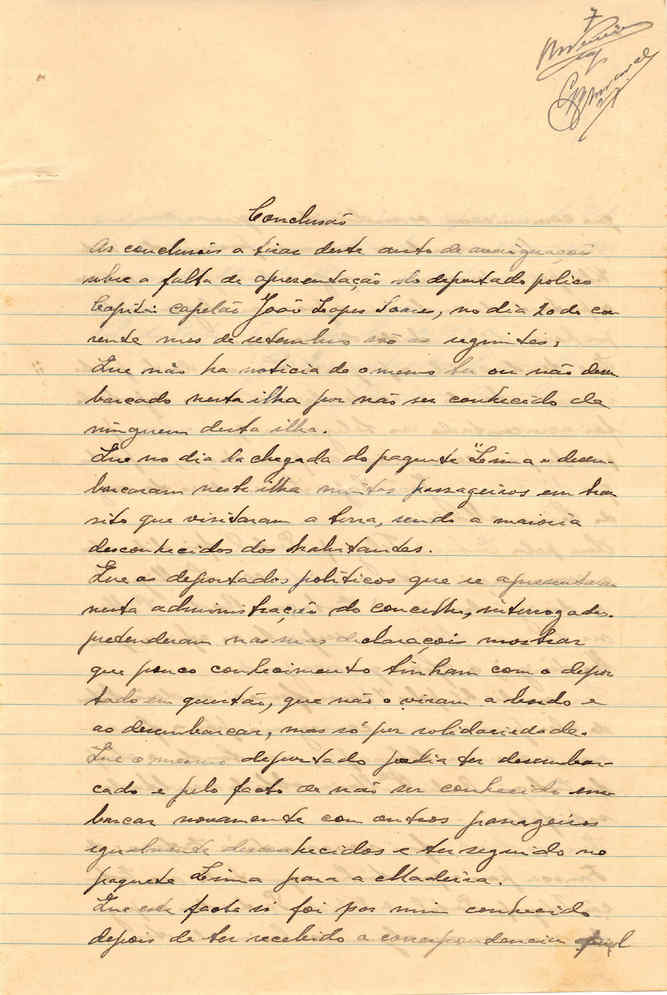 7
Conclusão
As conclusõis a tirar deste auto de averiguação
sobre a falta de apresentação do deportado politico
Capitão capelão João Lopes Soares, no dia 20 do cor
rente mes de setembro são as seguintes:
Que não ha noticia do mesmo ter ou não desem
barcado nesta ilha por não ser conhecido de
ninguem desta ilha.
Que no dia da chegada do paquete "Lima" desem-
barcaram neste ilha muitos passageiros em tran
sito que visitaram a terra, sendo a maioria
desconhecidos dos habitantes.
Que os deportados políticos que se apresentaram
nesta administração do concelho, interrogados,
pretenderam nas suas declaraçois mostrar
que pouco conhecimento tinham com o depor
tado em questão, que não o viram a bordo e
ao desembarcar, mas só por solidariedade.
Que o mesmo deportado podia ter desembar-
cado e pelo facto de não ser conhecido em
barcar novamente com outros passageiros
egualmente desconhecidos e ter seguido no
paquete Lima para a Madeira.
Que este facto só foi por mim conhecido
depois de ter recebido a correspondencia